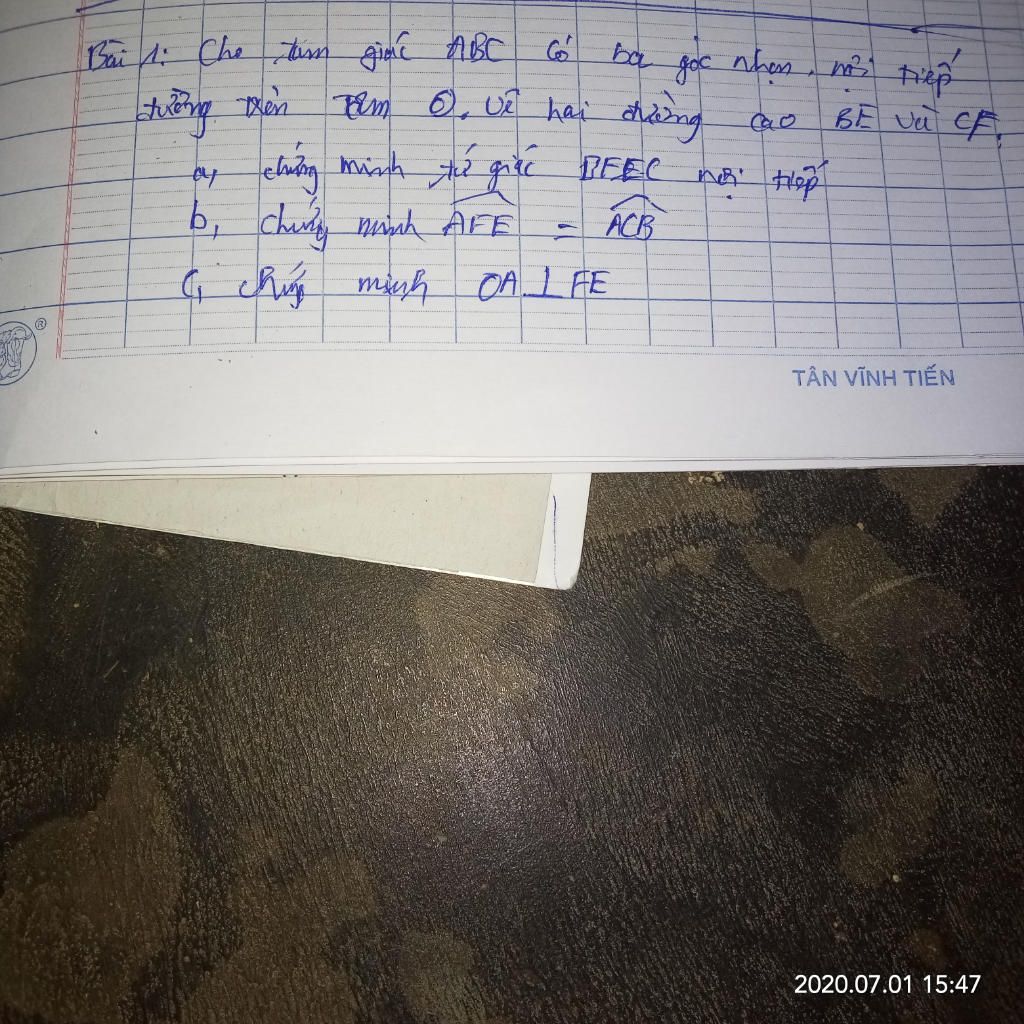 Bài 1: Cho tam giác ABC có ba góc nhọn, nội tiếp
đường tròn tâm O. Vẽ hai đường cao BE và CF.
a, chứng minh tứ giác BFEC nội tiếp
b, chứng minh AFE = ACB
c, chứng minh OA ⊥ FE
®
TÂN VĨNH TIẾN
2020.07.01 15:47